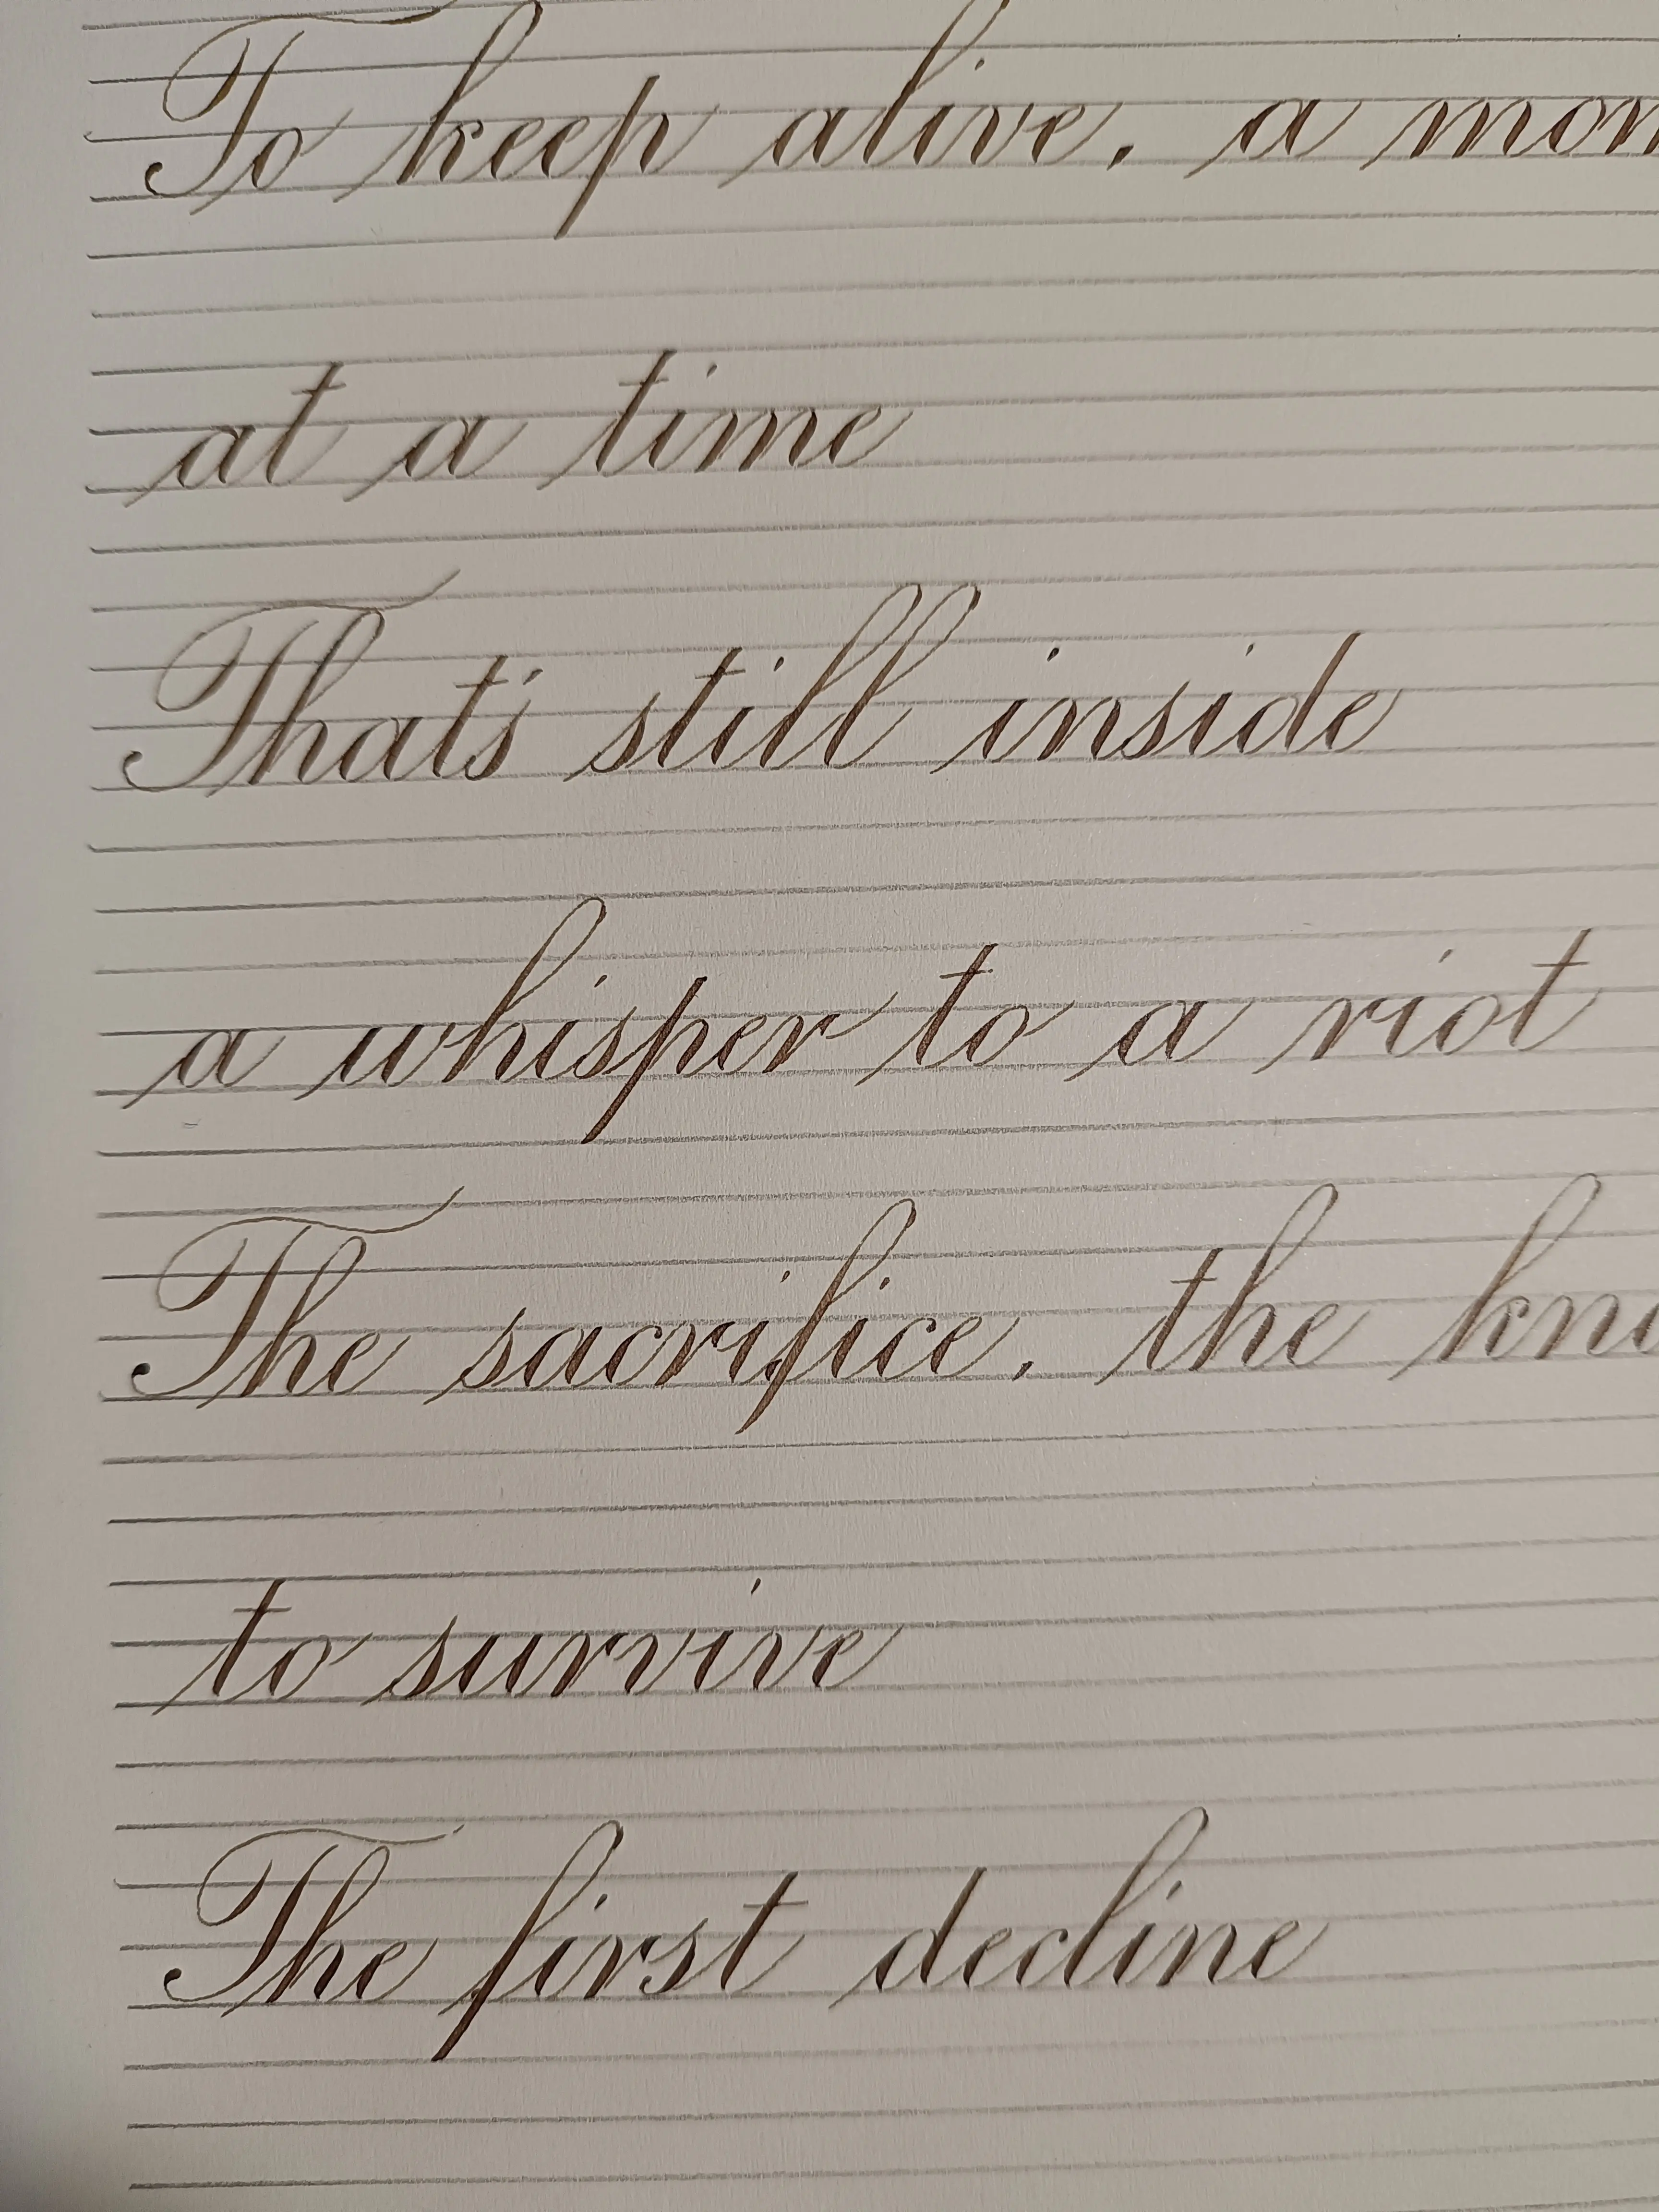 To keep alive, a mom
at a time
That's still inside
a whisper to a riot
The sacrifice, the kno
to survive
The first decline